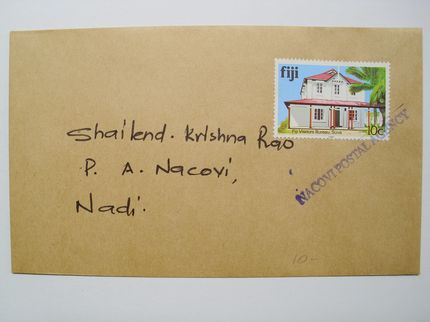 fiji
Fiji Visitors Bureau, Suva
10c
Shailend. Krishna Rao
P. A. Nacovi,
Nadi.
NACOVI POSTAL AGENCY
10-